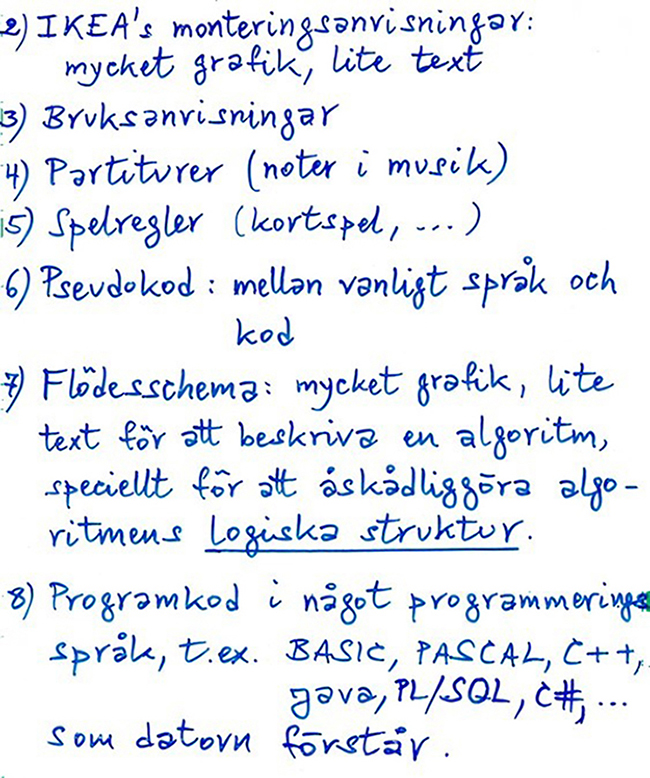 2) IKEA's monteringsanvisningar:
mycket grafik, lite text
3) Bruksanvisningar
4) Partiturer (noter i musik)
5) Spelregler (kortspel, ...)
6) Pseudokod: mellan vanligt språk och
kod
7) Flödesschema: mycket grafik, lite
text för att beskriva en algoritm,
speciellt för att åskådliggöra algo-
ritmens logiska struktur.
8) Programkod i något programmerings
språk, t.ex. BASIC, PASCAL, C++,
java, PL/SQL, C#, ...
som datorn förstår.